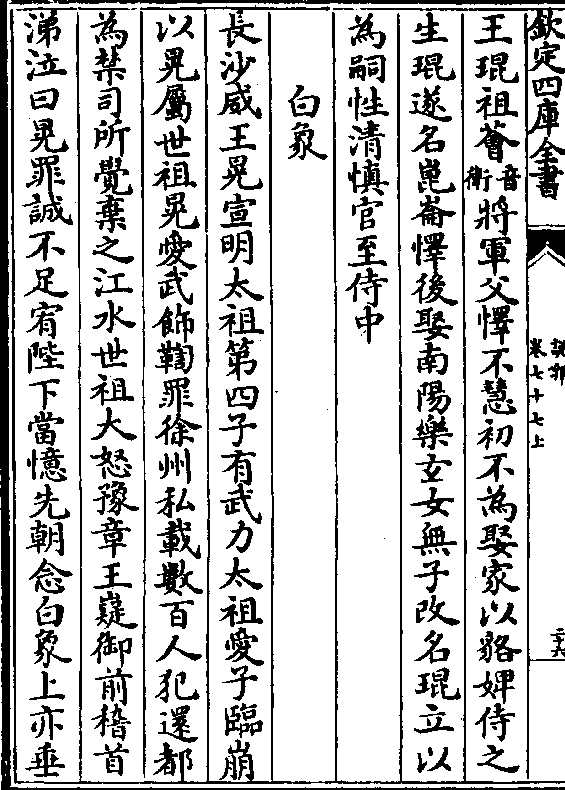 欽定四庫全書
說郛
卷七十七上
二十六
王琨祖薈音衛將軍父懌不慧初不為娶家以貉婢侍之
生琨遂名崑崙懌後娶南陽樂玄女無子改名琨立以
為嗣性清慎官至侍中
白象
長沙威王晃宣明太祖第四子有武力太祖愛子臨崩
以晃屬世祖晃愛武飾鞫罪徐州私載數百人犯還都
為禁司所覺棄之江水世祖大怒豫章王嶷御前稽首
涕泣曰晃罪誠不足宥陛下當憶先朝念白象上亦垂